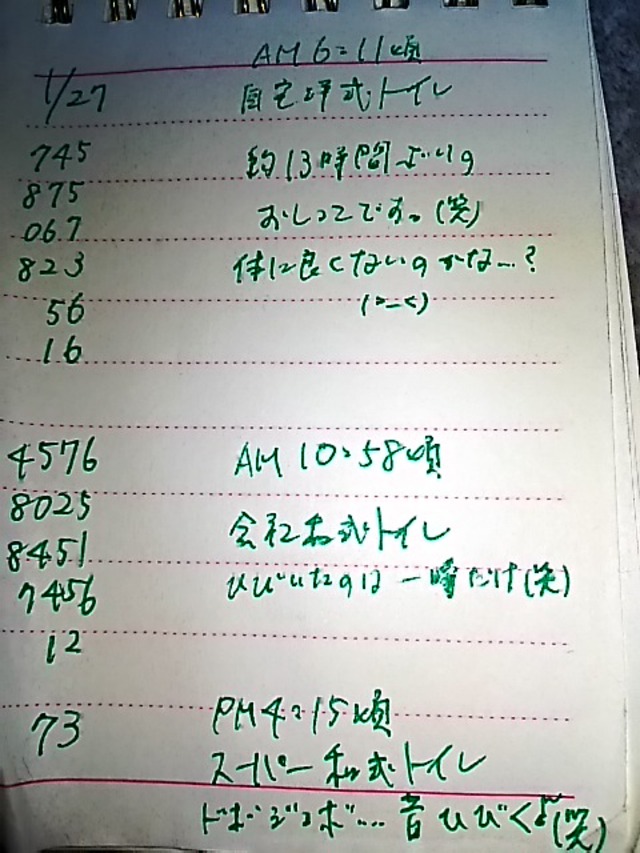 AM 6:11頃
1/27 自宅洋式トイレ
745 約13時間ぶりの
875
067 おしっこです。(笑)
823 体に良くないのかな…?
56 (>_<)
16
4576 AM 10:58頃
8025
8451 会社和式トイレ
7456 ひびいたのは一瞬だけ(笑)
12
73 PM4:15頃
スーパー和式トイレ
ドボジョボ…音ひびくよ(笑)